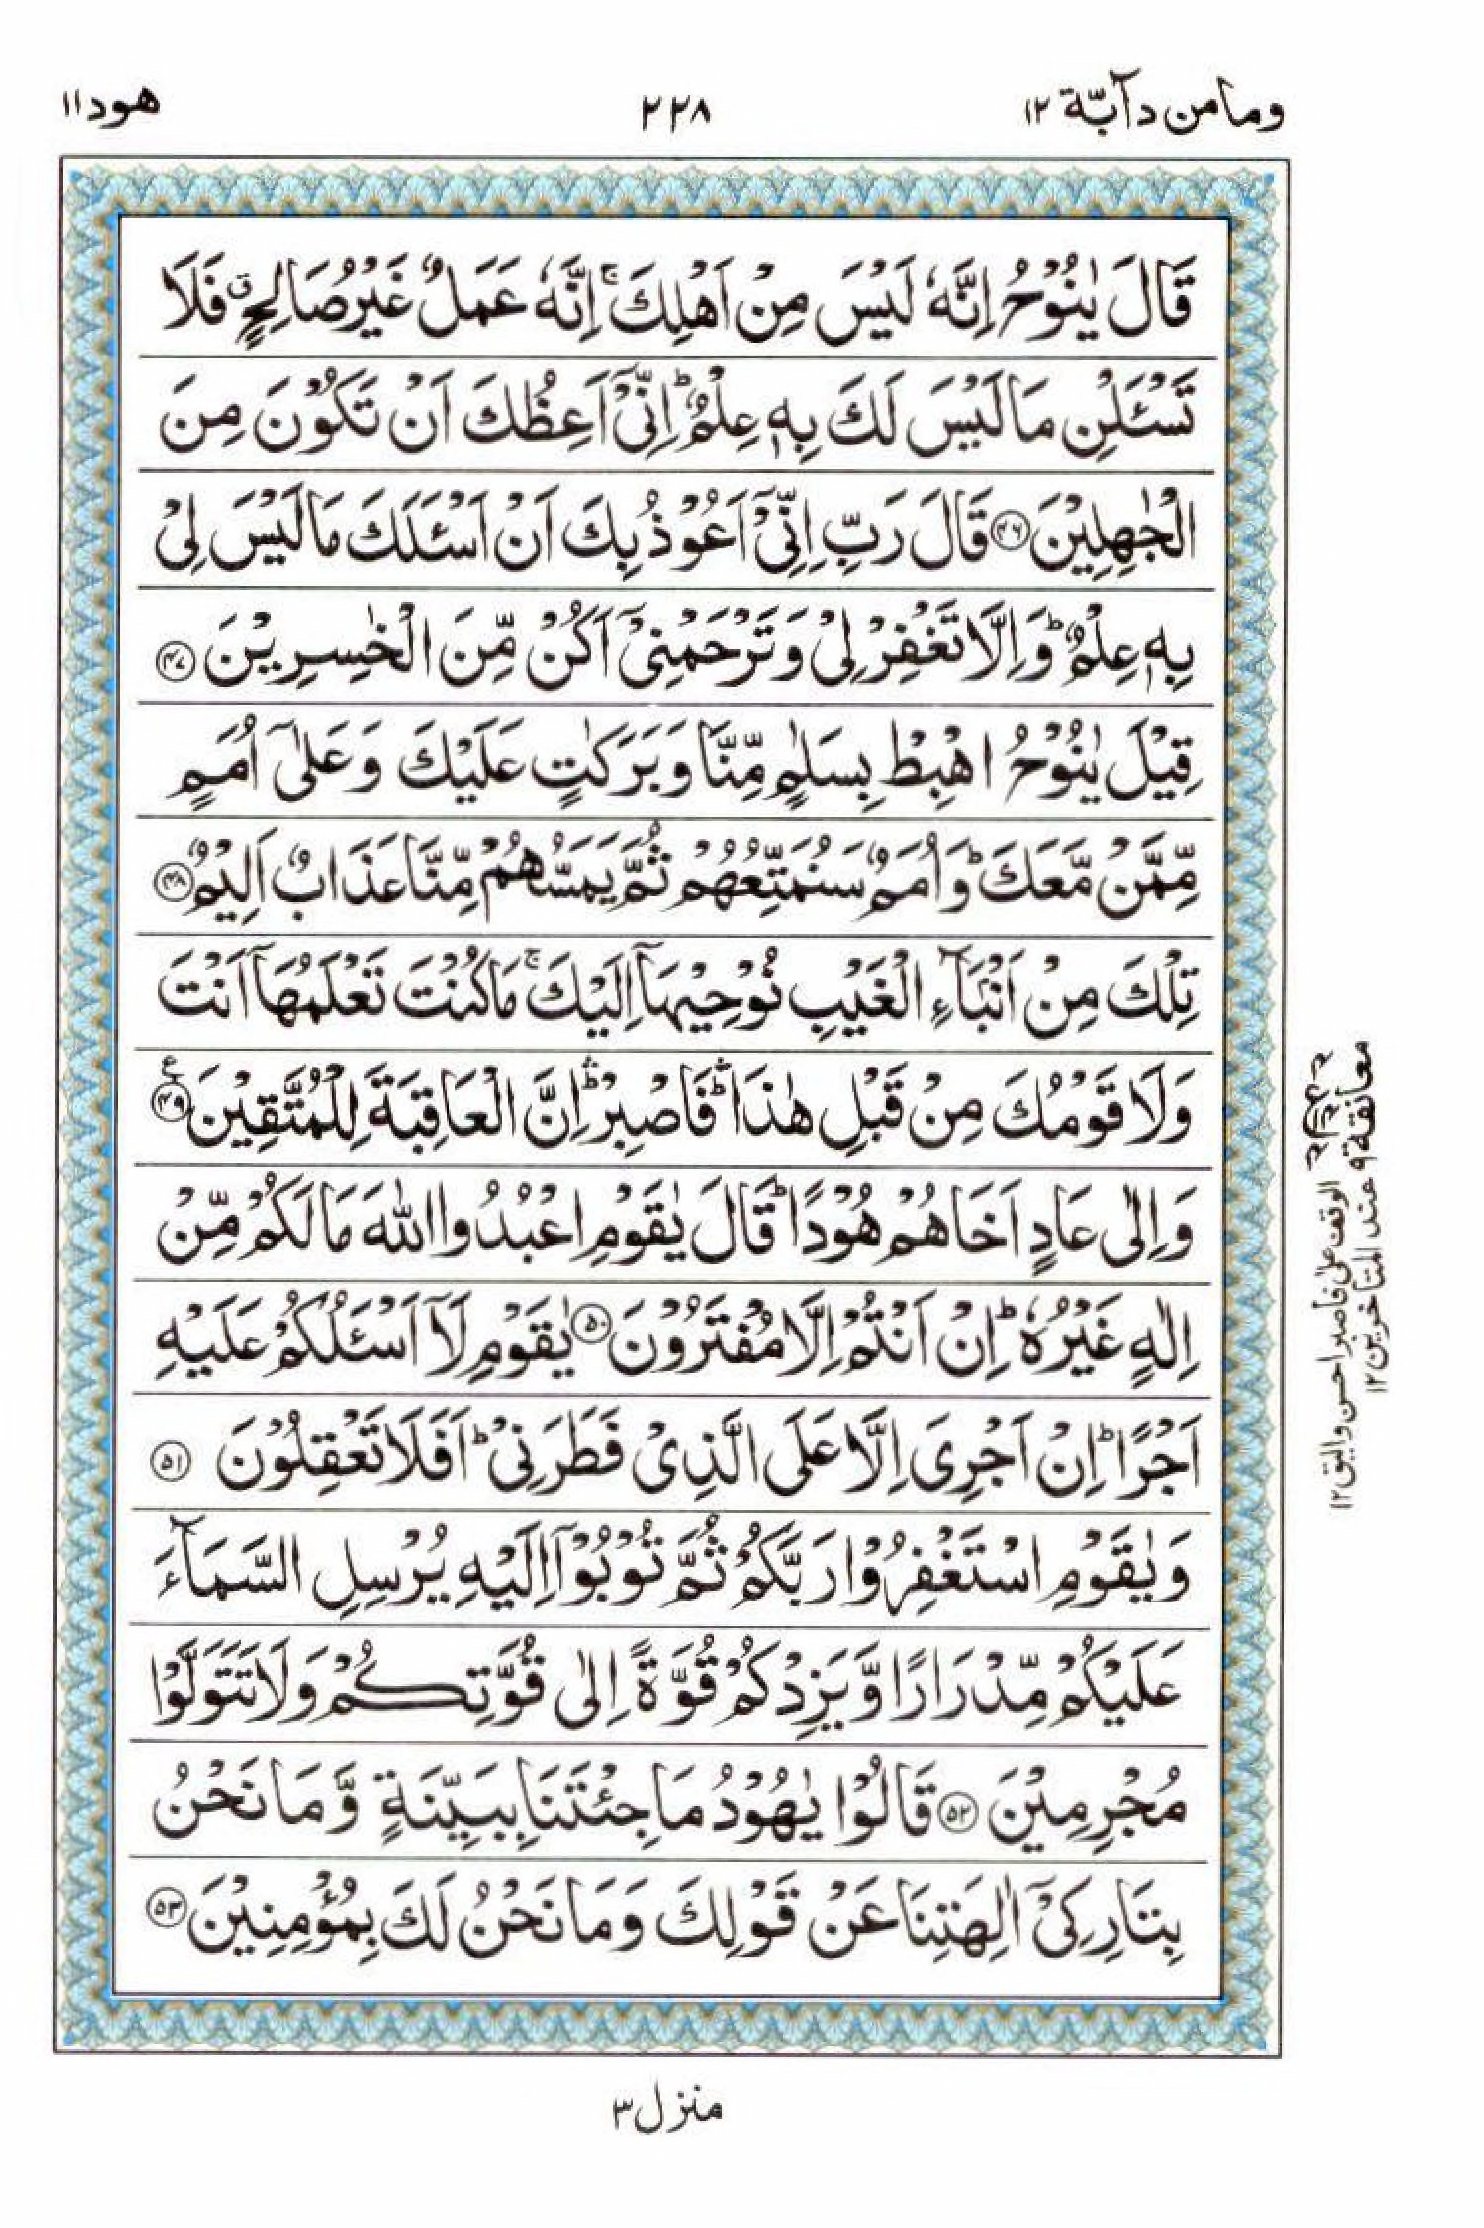 وما من دآبّة ١٢
٢٢٨
هود ١١
قَالَ يٰنُوْحُ اِنَّهٗ لَيْسَ مِنْ اَهْلِكَ ۚ اِنَّهٗ عَمَلٌ غَيْرُ صَالِحٍ ۖ فَلَا
تَسْـَٔلْنِ مَا لَيْسَ لَكَ بِهٖ عِلْمٌ ؕ اِنِّىْۤ اَعِظُكَ اَنْ تَكُوْنَ مِنَ
الْجٰهِلِيْنَ ۝۴۶ قَالَ رَبِّ اِنِّىْۤ اَعُوْذُ بِكَ اَنْ اَسْـَٔلَكَ مَا لَيْسَ لِىْ
بِهٖ عِلْمٌ ؕ وَاِلَّا تَغْفِرْ لِىْ وَتَرْحَمْنِىْۤ اَكُنْ مِّنَ الْخٰسِرِيْنَ ۝۴۷
قِيْلَ يٰنُوْحُ اهْبِطْ بِسَلٰمٍ مِّنَّا وَبَرَكٰتٍ عَلَيْكَ وَعَلٰٓى اُمَمٍ
مِّمَّنْ مَّعَكَ ؕ وَاُمَمٌ سَنُمَتِّعُهُمْ ثُمَّ يَمَسُّهُمْ مِّنَّا عَذَابٌ اَلِيْمٌ ۝۴۸
تِلْكَ مِنْ اَنْۢبَآءِ الْغَيْبِ نُوْحِيْهَاۤ اِلَيْكَ ۚ مَا كُنْتَ تَعْلَمُهَاۤ اَنْتَ
وَلَا قَوْمُكَ مِنْ قَبْلِ هٰذَا ۛؕ فَاصْبِرْ ۛؕ اِنَّ الْعَاقِبَةَ لِلْمُتَّقِيْنَ ۝۴۹ ع
وَاِلٰى عَادٍ اَخَاهُمْ هُوْدًا ؕ قَالَ يٰقَوْمِ اعْبُدُوا اللّٰهَ مَا لَكُمْ مِّنْ
اِلٰهٍ غَيْرُهٗ ؕ اِنْ اَنْتُمْ اِلَّا مُفْتَرُوْنَ ۝۵۰ يٰقَوْمِ لَاۤ اَسْـَٔلُكُمْ عَلَيْهِ
اَجْرًا ؕ اِنْ اَجْرِىَ اِلَّا عَلَى الَّذِىْ فَطَرَنِىْ ؕ اَفَلَا تَعْقِلُوْنَ ۝۵۱
وَيٰقَوْمِ اسْتَغْفِرُوْا رَبَّكُمْ ثُمَّ تُوْبُوْۤا اِلَيْهِ يُرْسِلِ السَّمَآءَ
عَلَيْكُمْ مِّدْرَارًا وَّيَزِدْكُمْ قُوَّةً اِلٰى قُوَّتِكُمْ وَلَا تَتَوَلَّوْا
مُجْرِمِيْنَ ۝۵۲ قَالُوْا يٰهُوْدُ مَا جِئْتَنَا بِبَيِّنَةٍ وَّمَا نَحْنُ
بِتَارِكِىْۤ اٰلِهَتِنَا عَنْ قَوْلِكَ وَمَا نَحْنُ لَكَ بِمُؤْمِنِيْنَ ۝۵۳
معانقة ٩ عند المتاخرين ١٢
الوقف على فاصبر احسن واليق ١٢
منزل ٣